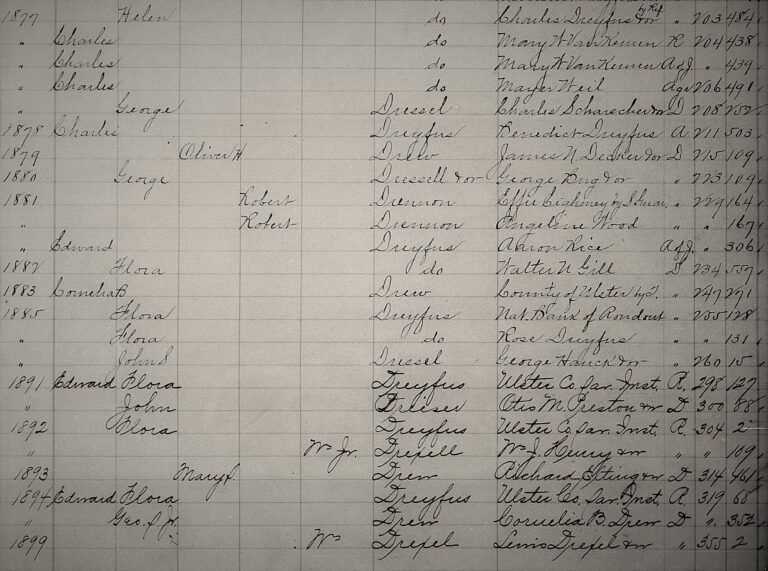 1877 Helen do Charles Dreyfus & or by Ref " 203 484
" Charles do Mary W Van Keuren R 204 438
" Charles do Mary W Van Keuren Asj. " 439
" Charles do Mayer Weil Agr 206 491
" George Dressel Charles Scharscher & or D 208 252
1878 Charles Dreyfus Benedict Dreyfus A 211 503
1879 Oliver H Drew James N. Decker & or D 215 109
1880 George Dressell & or George Bug & or " 223 109
1881 Robert Drennon Effie Eighmey by S. Guar. " 229 164
" Robert Drennon Angeline Wood " " 167
" Edward Dreyfus Aaron Rice Asj. " 306
1882 Flora do Walter N Gill D 234 557
1883 Cornelia B Drew County of Ulster by T. " 247 271
1885 Flora Dreyfus Nat. Bank of Rondout " 255 128
" Flora do Rose Dreyfus " " 131
" John S Dressel George Hauck & or " 260 15
1891 Edward Flora Dreyfus Ulster Co. Sav. Inst. R. 298 127
" John Dreiser Otis M. Preston & or D 300 88
1892 Flora Dreyfus Ulster Co. Sav. Inst. R. 304 2
" Wm Jr. Drexell Wm J. Henry & or " " 109
1893 Mary J. Drew Richard Elting & or D 314 461
1894 Edward Flora Dreyfus Ulster Co. Sav. Inst. R. 319 68
" Geo. S. Jr. Drew Cornelia B. Drew D " 352
1899 Wm Drexel Lewis Drexel & or " 355 2